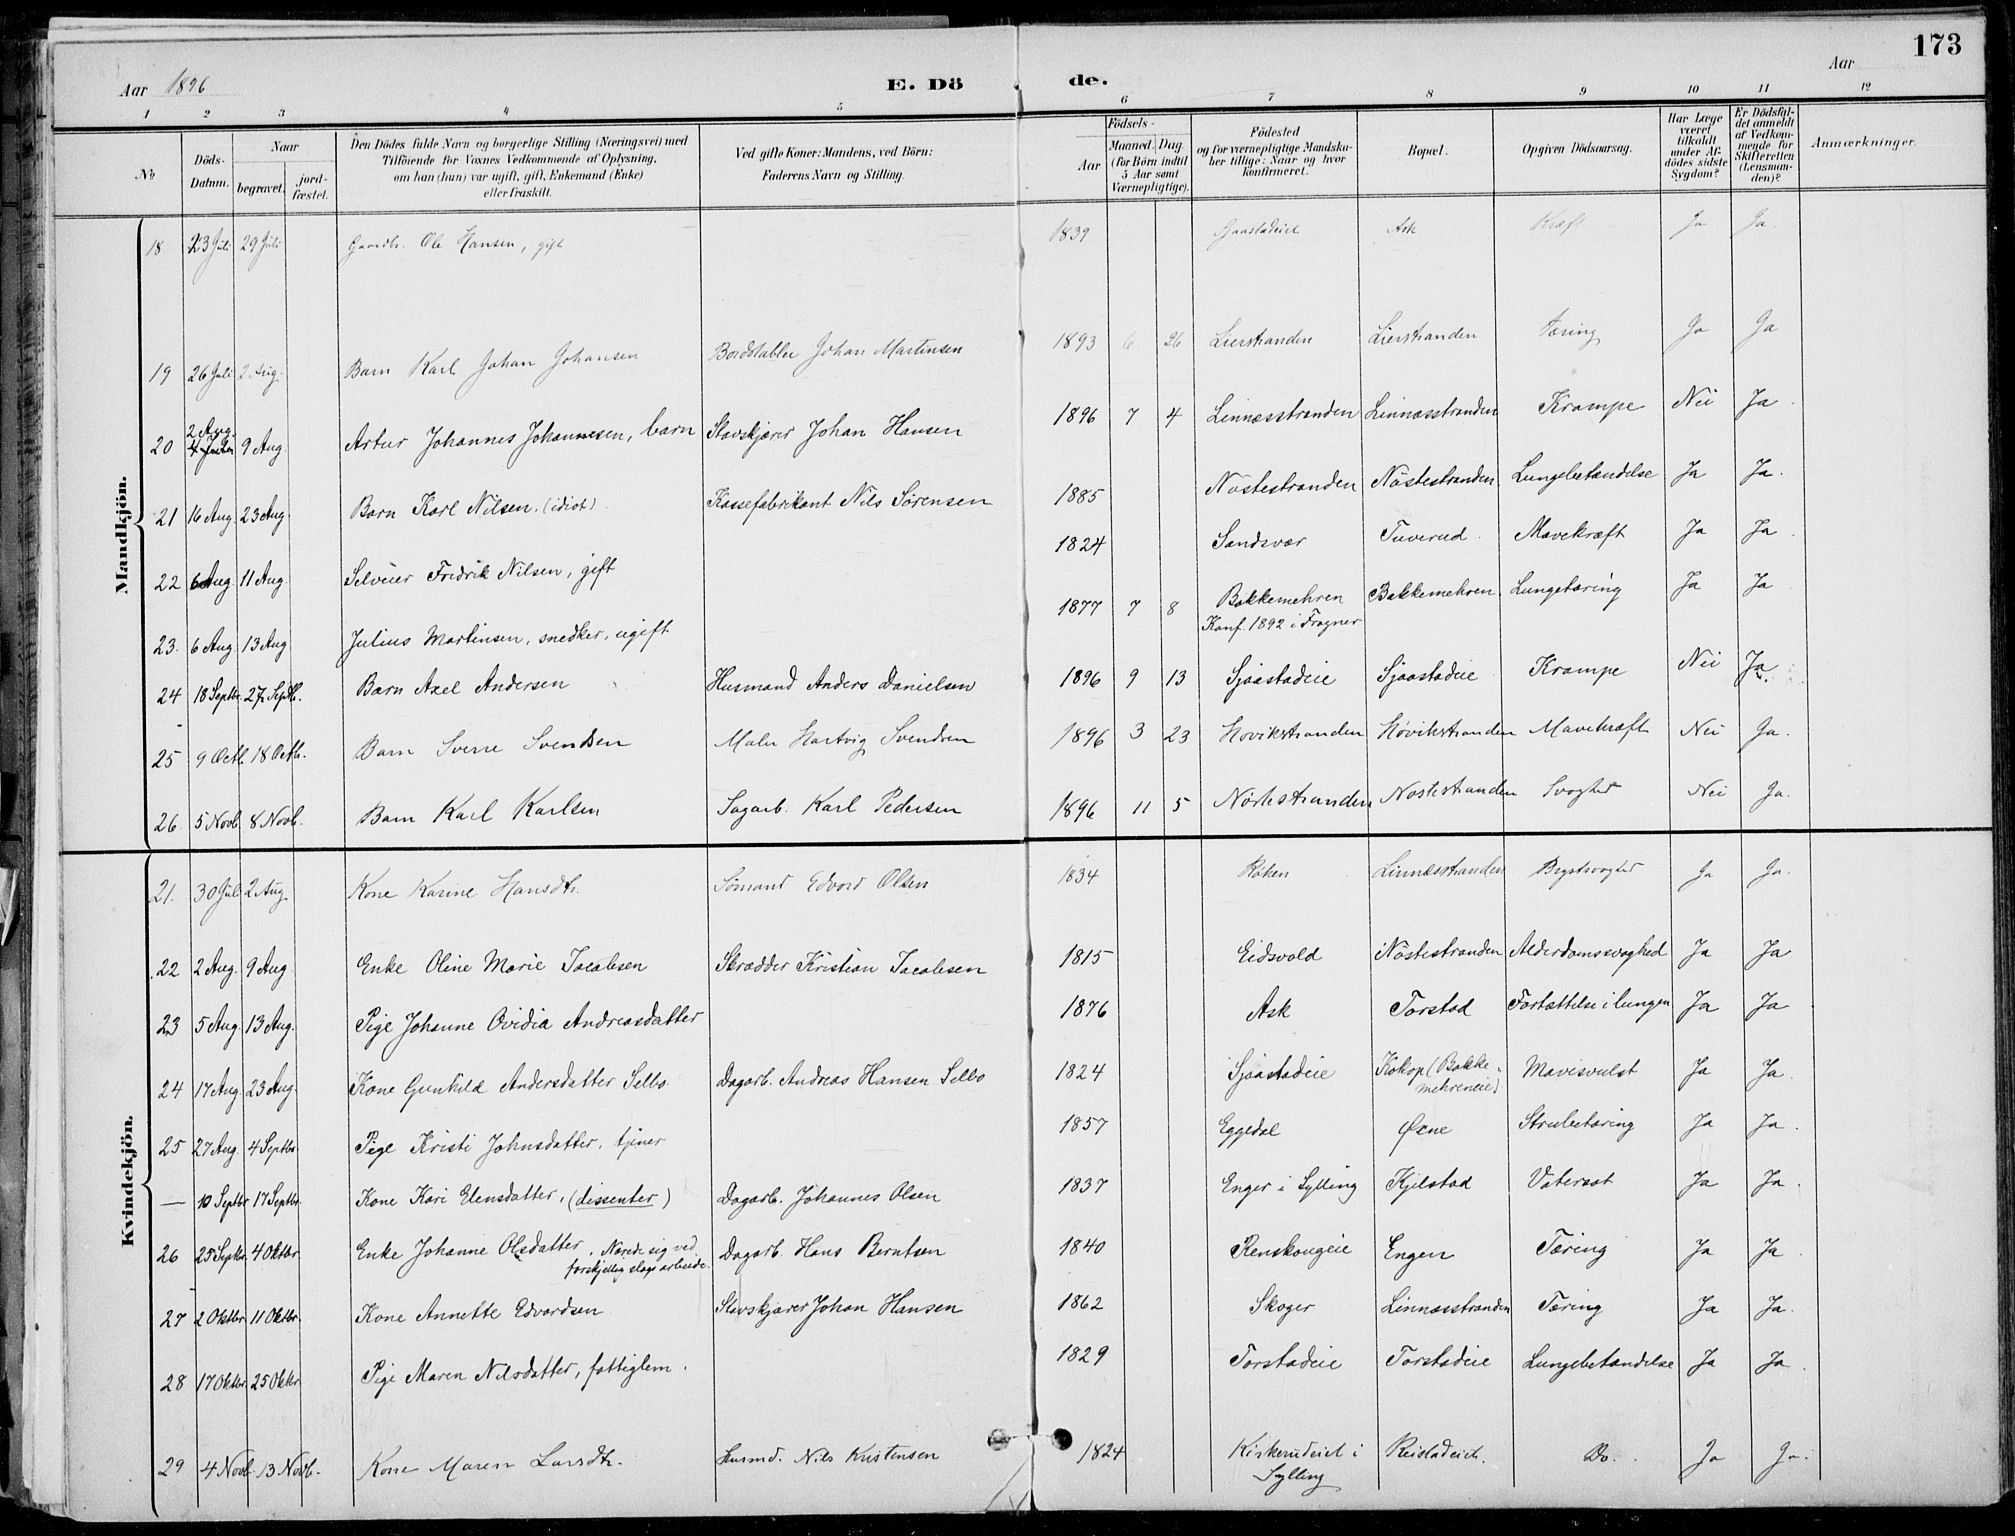 173
Aar 1896
E. Dö de.
Aar
1 2 3 4 5 6 7 8 9 10 11 12
No
Döds-Datum.
Naar
begravet.
jord-fæstet.
Den Dödes fulde Navn og borgerlige Stilling (Næringsvei) med
Tilföiende for Voxnes Vedkommende af Oplysning,
om han (hun) var ugift, gift, Enkemand (Enke)
eller fraskilt.
Ved gifte Koner: Mandens, ved Börn:
Faderens Navn og Stilling.
Födsels-
Aar
Maaned. Dag.
(for Börn indtil
5 Aar samt
Værnepligtige).
Födested
og for værnepligtige Mandska-
ber tillige: Naar og hvor
konfirmeret.
Bopæl.
Opgiven Dödsaarsag.
Har Læge
været
tilkaldt
under Af-
dödes sidste
Sygdom?
Er Dödsfal-
det anmeldt
af Vedkom-
mende for
Skifteretten
(Lensman-
den)?
Anmærkninger.
Mandkjön.
18 23 Juli 29 Juli Gaardbr. Ole Hansen, gift 1839 Gjaastadeiet Ask Kræft Ja Ja.
19 26 Juli 2 Aug. Barn Karl Johan Johansen Bordstabler Johan Martinsen 1893 6 26 Lierstranden Lierstranden Tæring Ja Ja
20 2 Aug. 9 Aug. Artur Johannes Johannesen, barn Stavskjærer Johan Hansen 1896 7 4 Linnæsstranden Linnæsstranden Krampe Nei Ja
21 16 Aug. 23 Aug. Barn Karl Nilsen. (idiot) Kassefabrikant Nils Sørensen 1885 Nøstestranden Nøstestranden Lungebetændelse Ja Ja.
22 6 Aug. 11 Aug. Selveier Fredrik Nilsen, gift 1824 Sandsvær Tuverud. Mavekræft Ja Ja.
23. 6 Aug. 13 Aug Julius Martinsen, snedker, ugift 1877 7 8 Bakkemehren Bakkemehren Lungetæring Ja Ja.
Konf. 1892 i Frogner
24 18 Septbr. 27 Septb. Barn Axel Andersen Husmand Anders Danielsen 1896 9 13 Sjaastadeie Sjaastadeie Krampe Nei Ja.
25 9 Octb. 18 Octb. Barn Sverre Svendsen Maler Hartvig Svendsen 1896 3 23 Høvikstranden Høvikstranden Mavekræft Nei Ja.
26. 5 Novb. 8 Novb. Barn Karl Karlsen Sagarb. Karl Pedersen 1896 11 5 Nøstestranden Nøstestranden Svaghed Nei Ja.
Kvindekjön.
21. 30 Juli 2 Aug. Kone Karine Hansdtr. Sømand Edvard Olsen 1834 Røken Linnæsstranden Brystsvaghed Ja Ja.
22 2 Aug. 9 Aug Enke Oline Marie Jacobsen Skrædder Kristian Jacobsen 1815 Eidsvold Nøstestranden Alderdomssvaghed Ja Ja
23 5 Aug. 13 Aug. Pige Johanne Ovidia Andreasdatter 1876 Ask Torstad Fortættelse i lungen Ja Ja
24 17 Aug. 23 Aug. Kone Gunhild Andersdatter Selbo Dagarb. Andreas Hansen Selbo 1824 Sjaastadeie Kokop (Bakke-
mehreneie) Mavesvulst Ja Ja.
25 27 Aug. 4 Septbr. Pige Kristi Johnsdatter, tjener 1857 Eggedal Øxne Strubetæring Ja Ja.
— 10 Septbr 17 Septbr Kone Kari Elensdatter, (dissenter) Dagarb. Johannes Olsen 1837 Enger i Sylling Kjelstad Vatersot Ja Ja.
26 25 Septbr. 4 Oktbr. Enke Johanne Olsdatter, Nærede sig ved
forskjellig slags arbeide. Dagarb. Hans Berntsen 1840 Renskougeie Engen Tæring Ja Ja.
27 2 Oktbr. 11 Oktbr. Kone Annette Edvardsen Stavskjærer Johan Hansen 1862 Skoger Linnæsstranden Tæring Ja Ja.
28 17 Oktbr. 25 Oktbr Pige Maren Nilsdatter, fattiglem. 1829 Torstadeie Torstadeie Lungebetændelse Ja Ja.
29 4 Novb. 13 Novb. Kone Maren Larsdtr. Husmd. Nils Kristensen 1824 Kirkerudeiet i
Sylling Reistadeiet. Do. Ja Ja.